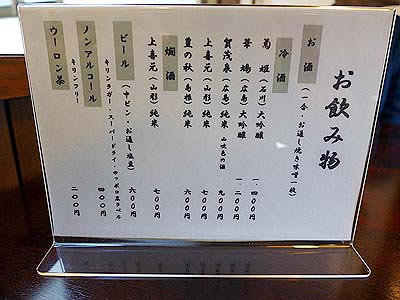 お飲み物
お酒 (一合・お通し焼き味噌一枚)
冷酒
菊姫 (石川) 大吟醸 一、四〇〇円
華鳩 (広島) 大吟醸 一、二〇〇円
賀茂泉 (広島) 純米 山吹色の酒 九〇〇円
上喜元 (山形) 純米 七〇〇円
豊の秋 (島根) 純米 六〇〇円
燗酒
上喜元 (山形) 純米 七〇〇円
ビール (中ビン・お通し塩豆) 六〇〇円
キリンラガー・スーパードライ・サッポロ黒ラベル
ノンアルコール 四〇〇円
キリンフリー
ウーロン茶 二〇〇円